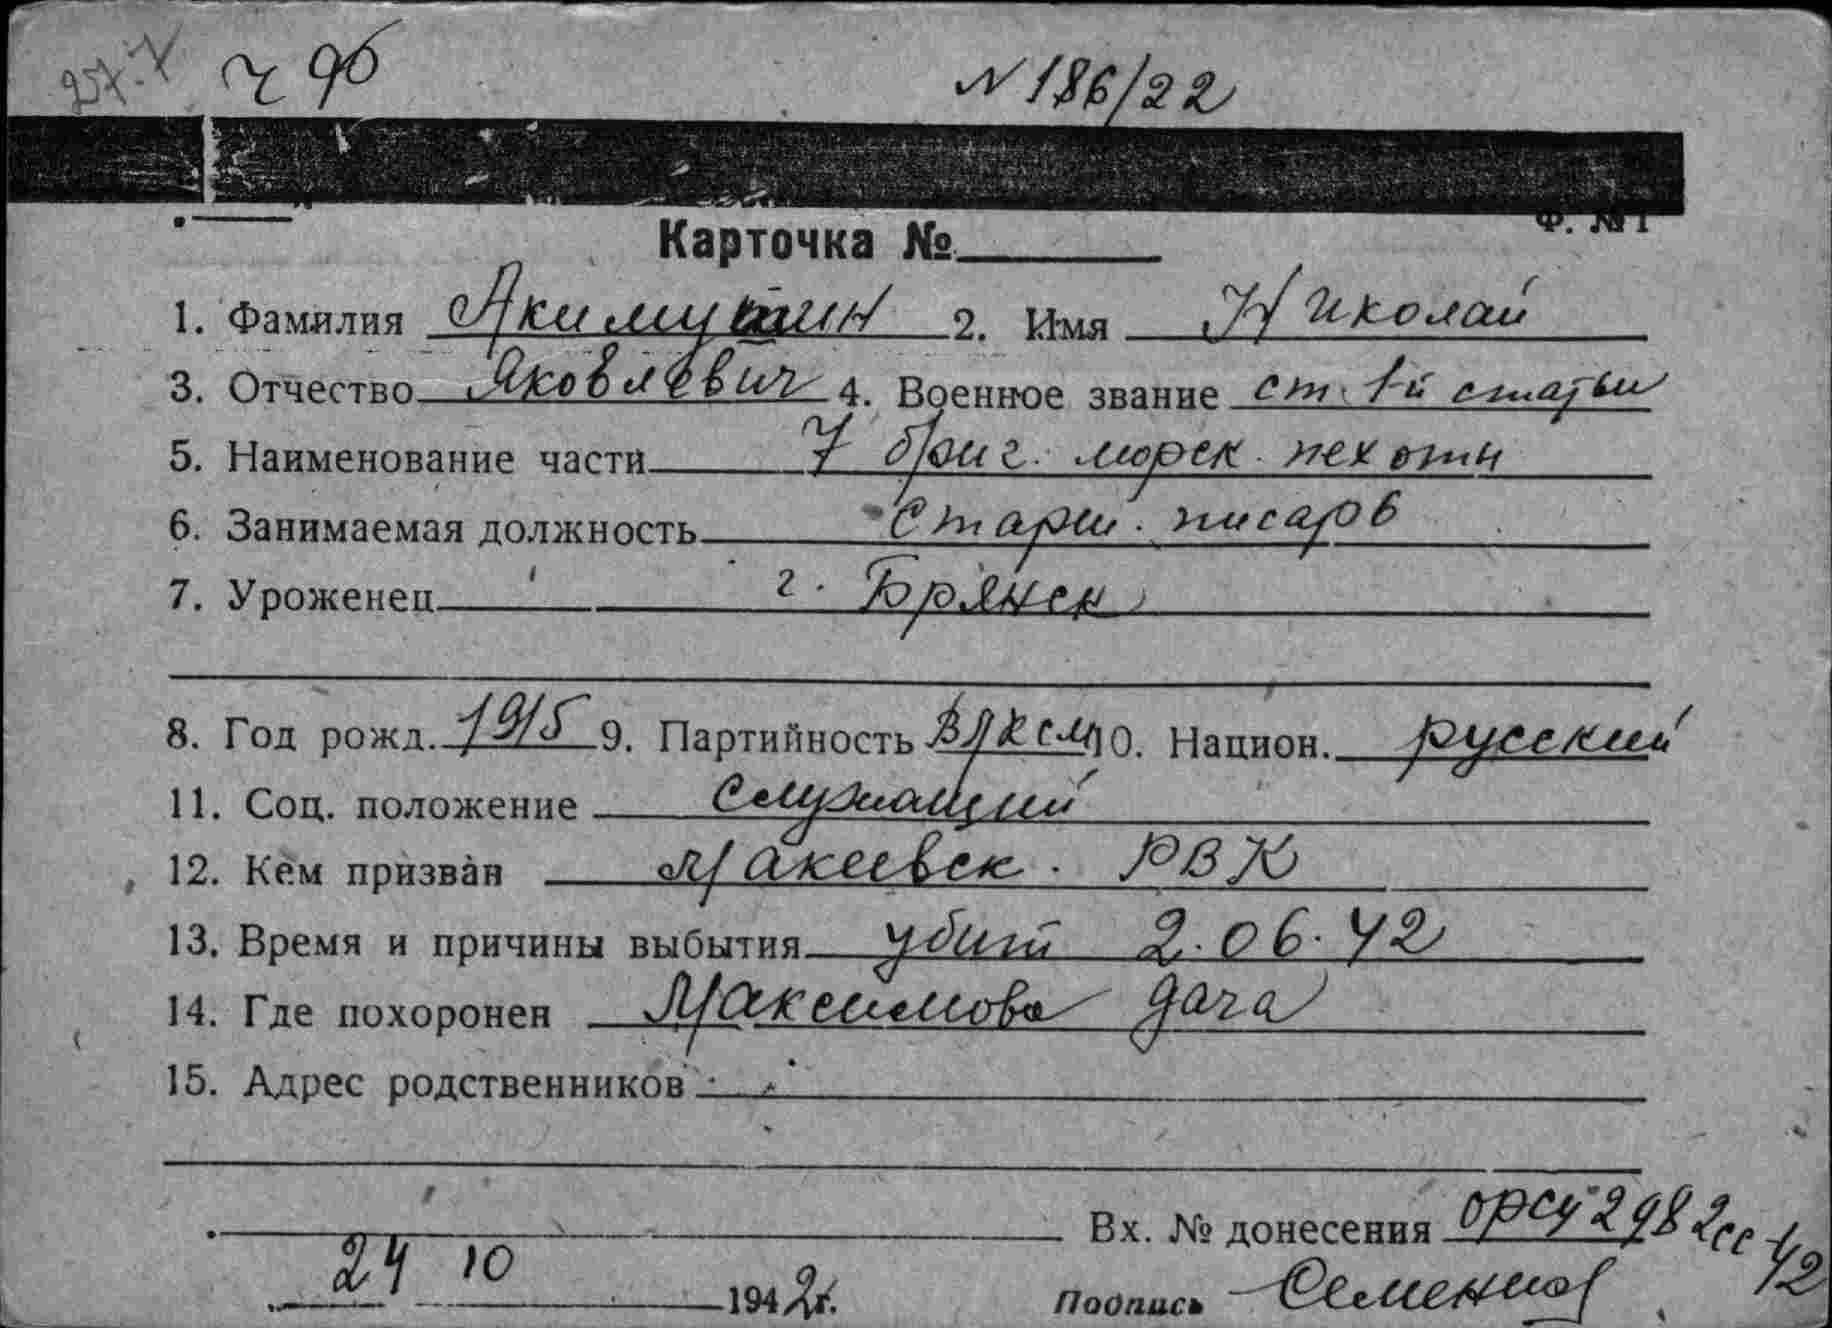 ч 96
N 186/22
Ф. № 1
Карточка №
1. Фамилия Акимушин 2. Имя Николай
3. Отчество Яковлевич 4. Военное звание ст. 1-й статьи
5. Наименование части 7 бриг. морск. пехоты
6. Занимаемая должность Старш. писаръ
7. Уроженец г. Брянск
8. Год рожд. 1915 9. Партийность ВЛКСМ 10. Национ. русский
11. Соц. положение служащий
12. Кем призван Макеевск. РВК
13. Время и причины выбытия убит 2.06.42
14. Где похоронен Максимова дача
15. Адрес родственников
Вх. № донесения орсу 2982сс 42
24 10 1942г. Подпись